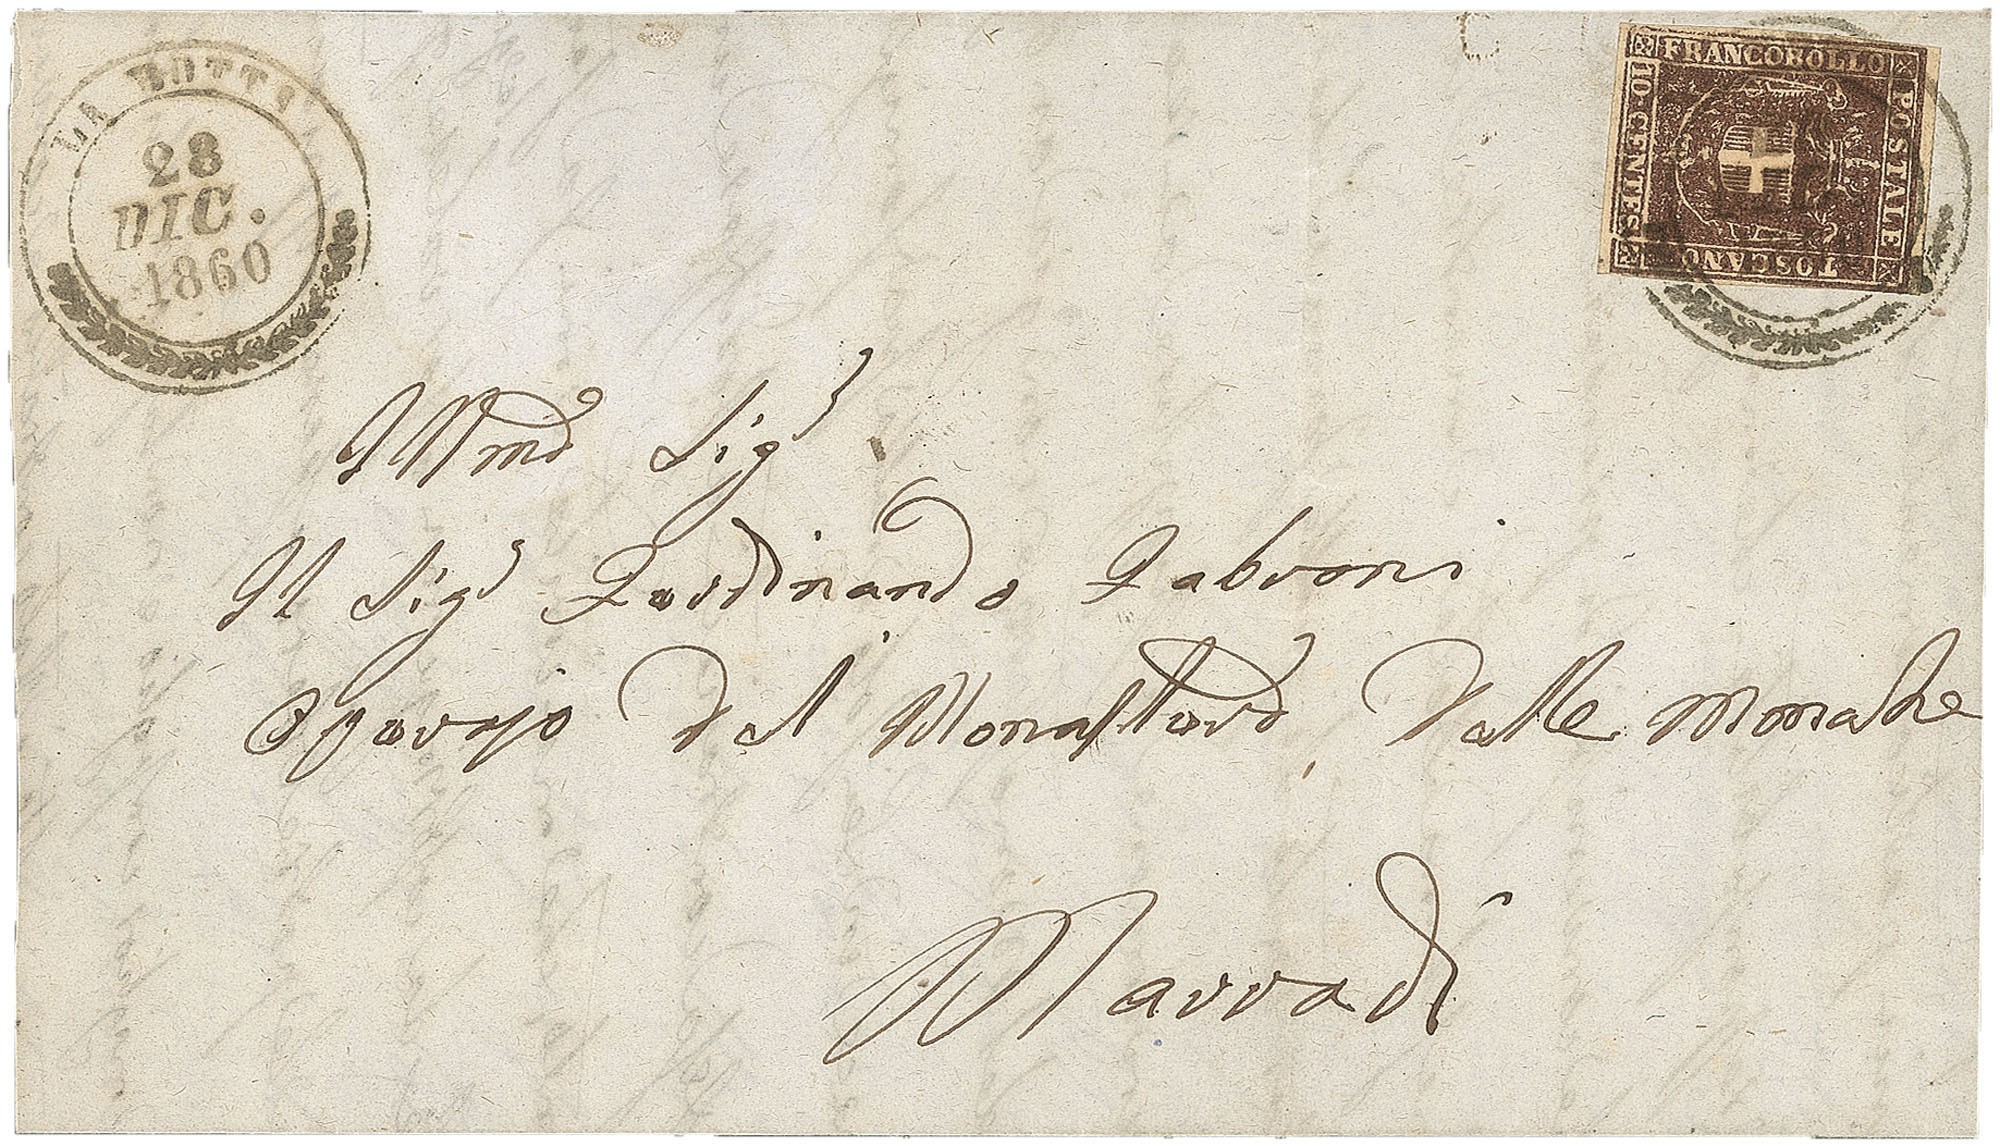 LA ROTTA
28
DIC.
1860
FRANCOBOLLO
POSTALE
TOSCANO
10·CENTES
Illmo Sigr
Il Sigr Ferdinando Fabroni
Operajo del Monastero delle Monache
Marradi